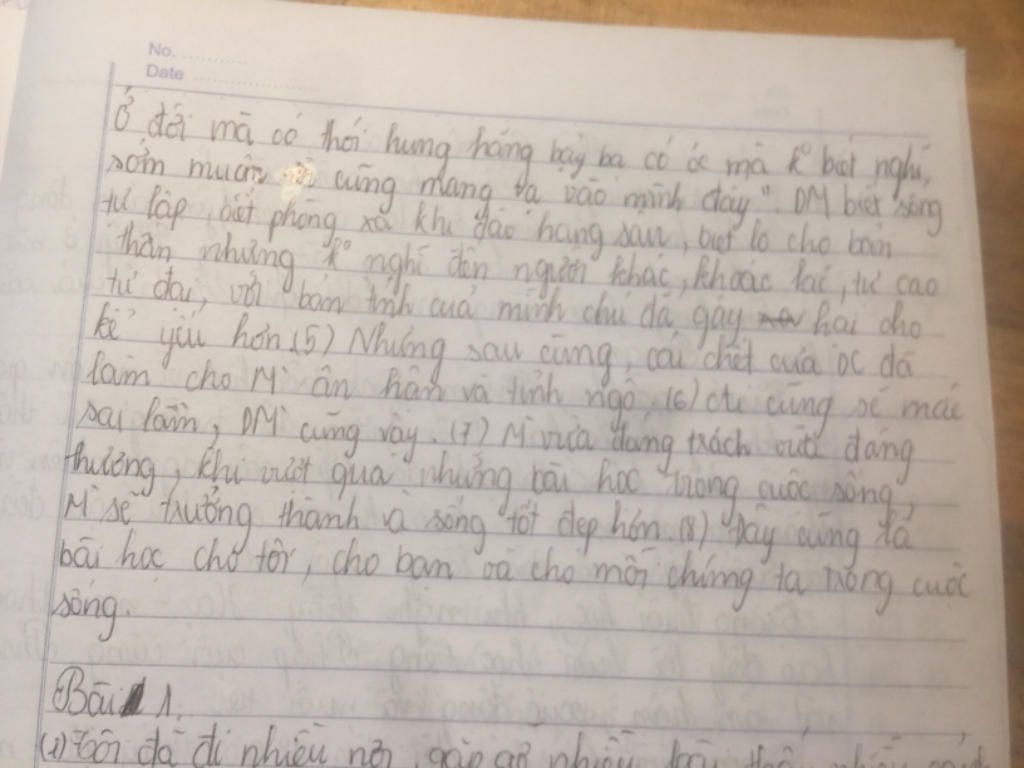 No. ...........
Date ....................
Ở đời mà có thói hung hăng bậy bạ có óc mà k° biết nghĩ,
sớm muộn cũng mang vạ vào mình đấy". DM biết sống
tự lập, biết phòng xa khi đào hang sâu, biết lo cho bản
thân nhưng k° nghĩ đến người khác, khoác lác, tự cao
tự đại, với bản tính của mình chú đã gây hại cho
kẻ yếu hơn. (5) Nhưng sau cùng, cái chết của DC đã
làm cho Mì ân hận và tỉnh ngộ. (6) cũng sẽ mắc
sai lầm, DM cũng vậy. (7) M vừa đáng trách vừa đáng
thương, khi vượt qua những bài học trong cuộc sống,
M sẽ trưởng thành và sống tốt đẹp hơn. (8) Đây cũng là
bài học cho tôi, cho bạn và cho mỗi chúng ta trong cuộc
sống.
Bài 1.
(1) Tôi đã đi nhiều nơi, gặp gỡ nhiều